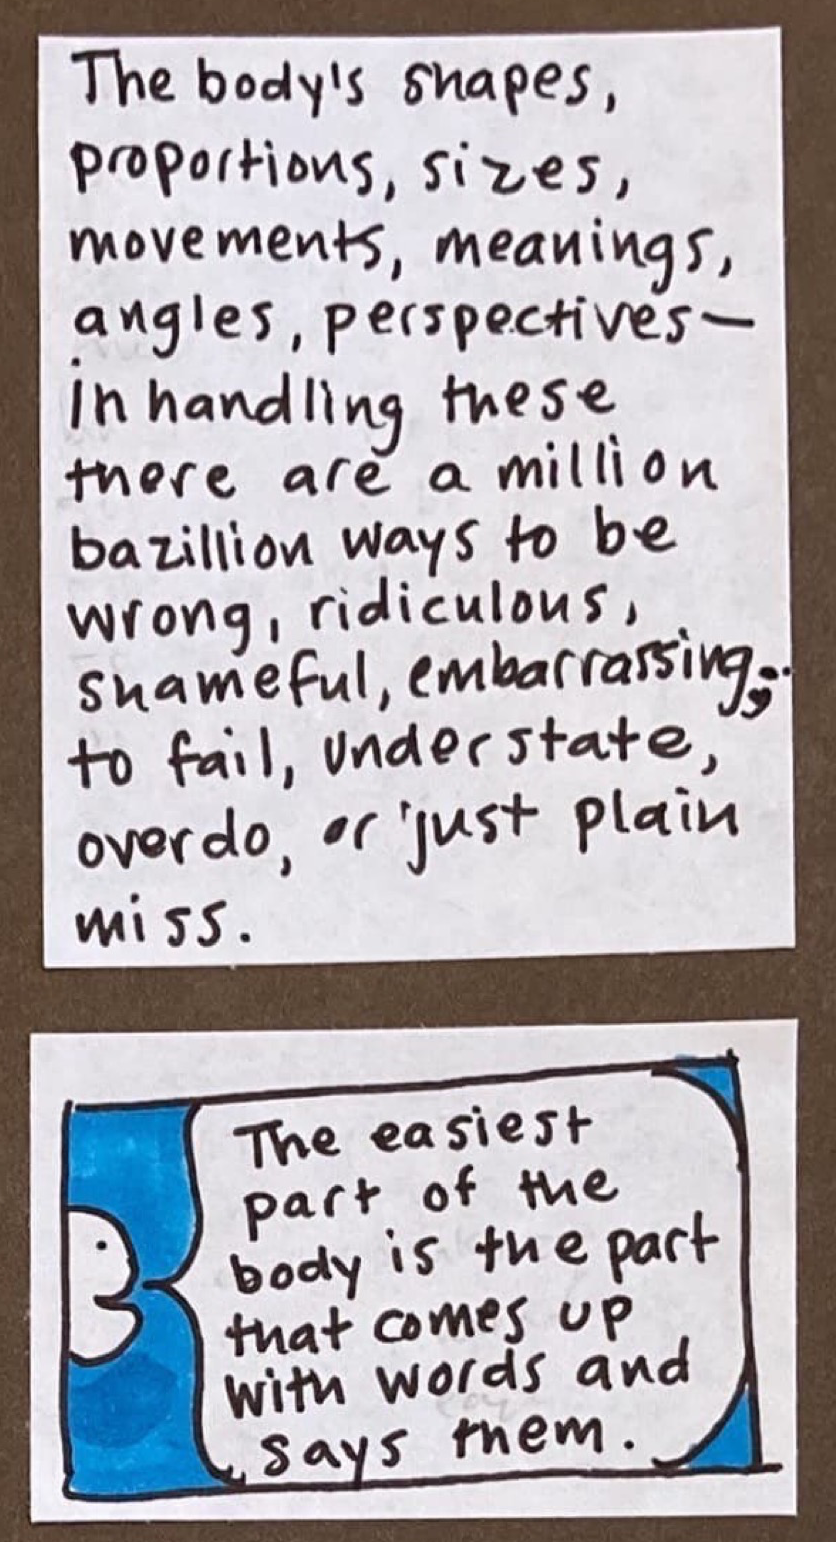 The body's shapes,
proportions, sizes,
movements, meanings,
angles, perspectives—
in handling these
there are a million
bazillion ways to be
wrong, ridiculous,
shameful, embarrassing;
to fail, understate,
overdo, or just plain
miss.
The easiest
part of the
body is the part
that comes up
with words and
says them.